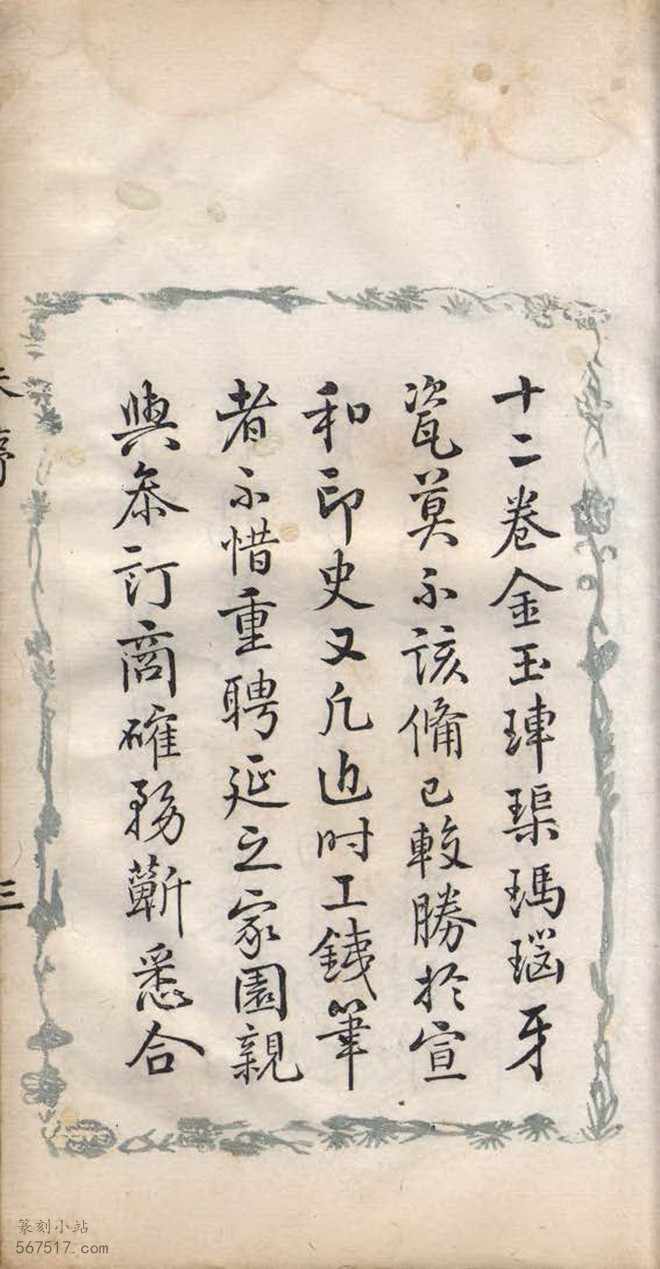 十二卷金玉琿璖瑪瑙牙
瓷莫不該備已較勝於宣
和印史又凡近时工鉄筆
者不惜重聘延之家園親
與叅訂商確務蘄悉合
三
篆刻小站
567517.com